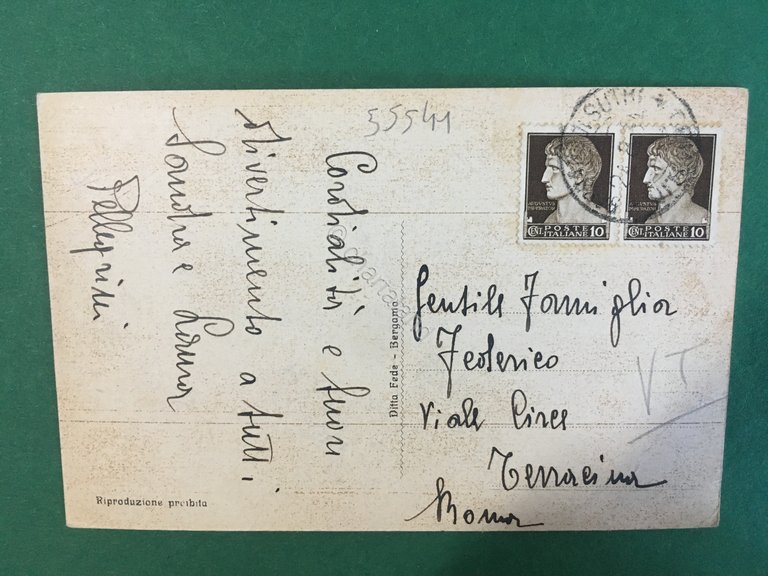 55541
Cordialità e buon
divertimento a tutti
Sandra e
Pellegrini
Ditta Fede - Bergamo
Riproduzione proibita
SUTRI
AVGVSTVS
IMPERATOR
CENT. POSTE ITALIANE 10
AVGVSTVS
IMPERATOR
CENT. POSTE ITALIANE 10
Gentile Famiglia
Federico
Viale Circe
Terracina
Roma
VT